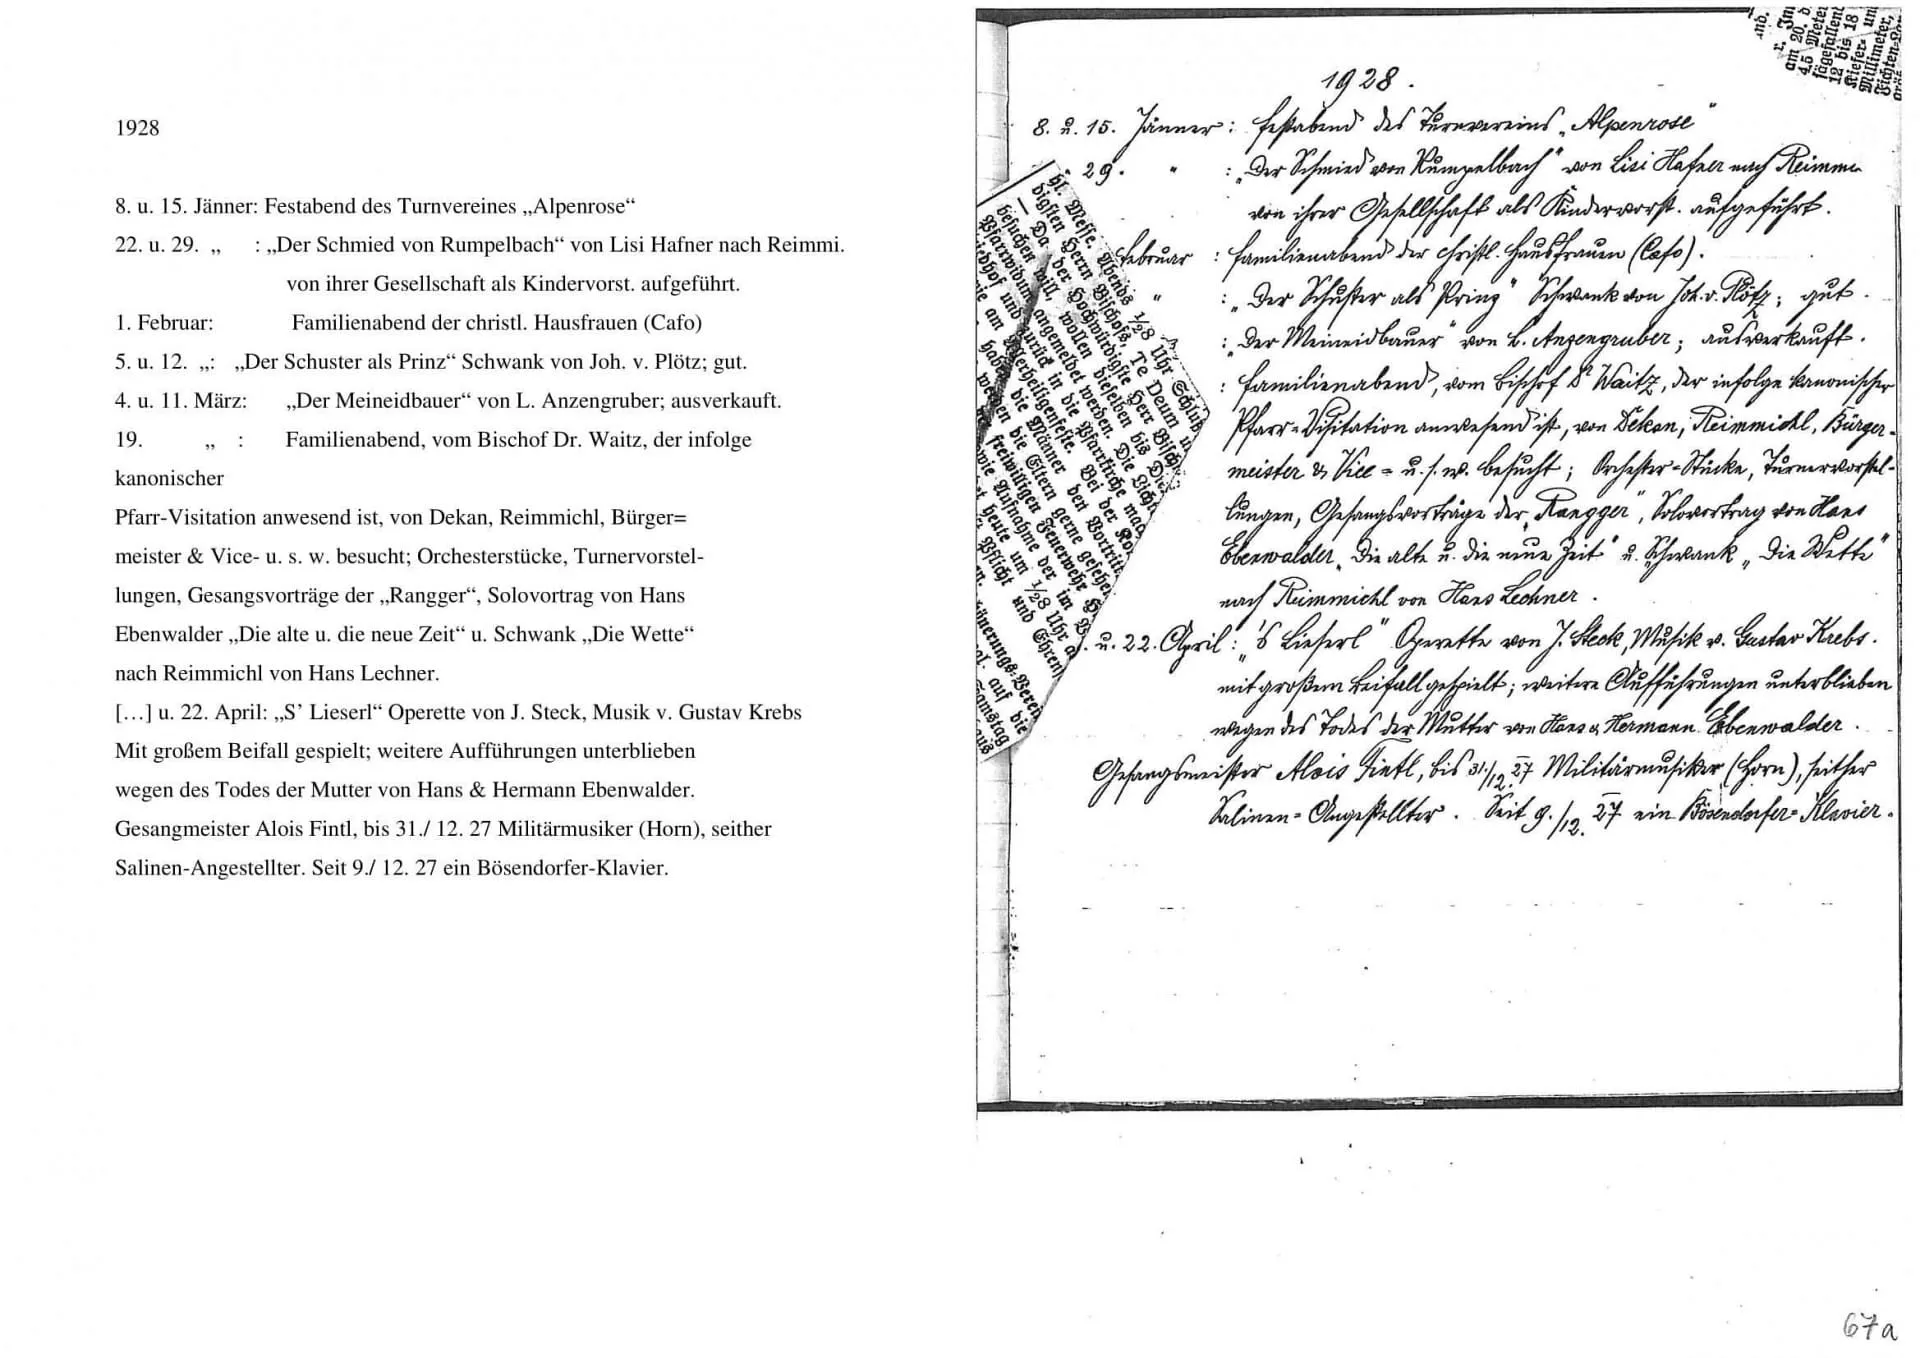 1928
8. u. 15. Jänner: Festabend des Turnvereines „Alpenrose“
22. u. 29. „ : „Der Schmied von Rumpelbach“ von Lisi Hafner nach Reimmi.
von ihrer Gesellschaft als Kindervorst. aufgeführt.
1. Februar: Familienabend der christl. Hausfrauen (Cafo)
5. u. 12. „: „Der Schuster als Prinz“ Schwank von Joh. v. Plötz; gut.
4. u. 11. März: „Der Meineidbauer“ von L. Anzengruber; ausverkauft.
19. „ : Familienabend, vom Bischof Dr. Waitz, der infolge
kanonischer
Pfarr-Visitation anwesend ist, von Dekan, Reimmichl, Bürger=
meister & Vice- u. s. w. besucht; Orchesterstücke, Turnervorstel-
lungen, Gesangsvorträge der „Rangger“, Solovortrag von Hans
Ebenwalder „Die alte u. die neue Zeit“ u. Schwank „Die Wette“
nach Reimmichl von Hans Lechner.
[…] u. 22. April: „S’ Lieserl“ Operette von J. Steck, Musik v. Gustav Krebs
Mit großem Beifall gespielt; weitere Aufführungen unterblieben
wegen des Todes der Mutter von Hans & Hermann Ebenwalder.
Gesangmeister Alois Fintl, bis 31./ 12. 27 Militärmusiker (Horn), seither
Salinen-Angestellter. Seit 9./ 12. 27 ein Bösendorfer-Klavier.
1928.
8. u. 15. Jänner: Festabend des Turnvereins „Alpenrose“
29. " : „Der Schmied von Rumpelbach“ von Lisi Hafner nach Reimm
von ihrer Gesellschaft als Kindervorst. aufgeführt.
Februar : Familienabend der christl. Hausfrauen (Cafo).
" : „Der Schuster als Prinz“ Schwank von Joh. v. Plötz; gut.
: „Der Meineidbauer“ von L. Anzengruber; ausverkauft.
: Familienabend, vom Bischof Dr Waitz, der infolge kanonischer
Pfarr-Visitation anwesend ist, von Dekan, Reimmichl, Bürger-
meister & Vice- u. s. w. besucht; Orchester-Stücke, Turnervorstel-
lungen, Gesangsvorträge der „Rangger“, Solovortrag von Hans
Ebenwalder „Die alte u. die neue Zeit“ u. Schwank „Die Wette“
nach Reimmichl von Hans Lechner.
. u. 22. April: „'s Lieserl“ Operette von J. Steck, Musik v. Gustav Krebs.
mit großem Beifall gespielt; weitere Aufführungen unterblieben
wegen des Todes der Mutter von Hans & Hermann Ebenwalder.
Gesangsmeister Alois Fintl, bis 31./12. 27 Militärmusiker (Horn), seither
Salinen-Angestellter. Seit 9./12. 27 ein Bösendorfer-Klavier.
hl. Messe. Abends 1/28 Uhr Schluß
digsten Herrn Bischofs, Te Deum u
— Da der Hochwürdigste Herr Bisch
besuchen will, wollen dieselben bis Die
67a